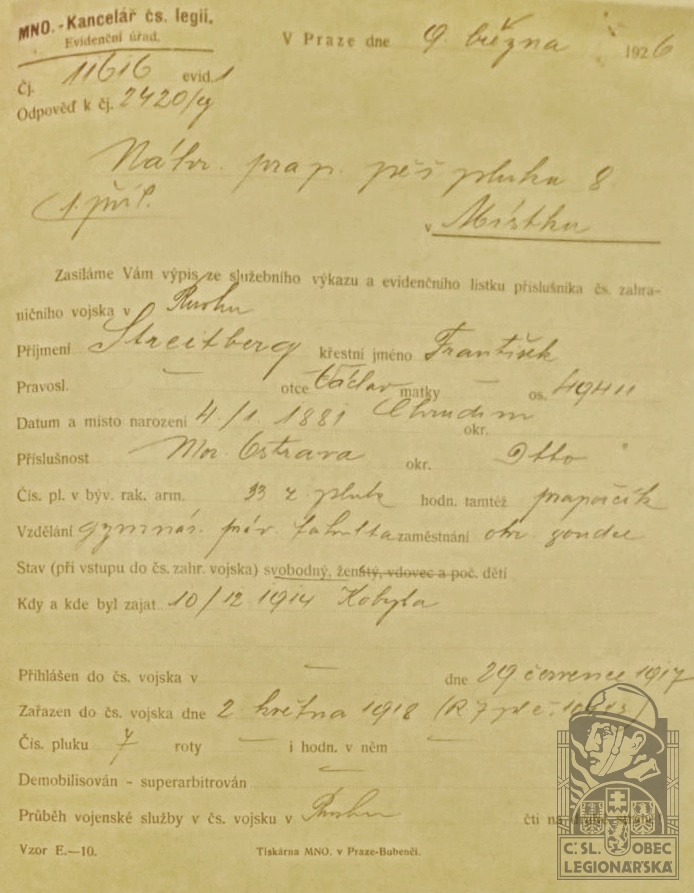 MNO.-Kancelář čs. legií,
Evidenční úřad.
V Praze dne 9. března 1926
Čj. 11616 evid.1
Odpověď k čj. 2420/
Náhr. prap. pěš pluku 8
(1 příl.
v Místku
Zasíláme Vám výpis ze služebního výkazu a evidenčního lístku příslušníka čs. zahra-
ničního vojska v Rusku
Příjmení Streitberg křestní jméno František
Pravosl. — otce Václav matky — os. 49411
Datum a místo narození 4./1 1881 Chrudim
okr.
Příslušnost Mor. Ostrava okr. Dtto
Čís. pl. v býv. rak. arm. 33 z. pluk hodn. tamtéž praporčík
Vzdělání gymnás. práv. fakulta zaměstnání okr. soudce
Stav (při vstupu do čs. zahr. vojska) svobodný, ženatý, vdovec a poč. dětí
Kdy a kde byl zajat 10/12 1914 Kobyla
Přihlášen do čs. vojska v — dne 29 července 1917
Zařazen do čs. vojska dne 2 května 1918 (R 7 pl č.
Čís. pluku 7 roty — i hodn. v něm —
Demobilisován - superarbitrován —
Průběh vojenské služby v čs. vojsku v Rusku čti na druhé straně!
Vzor E.—10. Tiskárna MNO. v Praze-Bubenči.
Č.SL. OBEC
LEGIONÁŘSKÁ